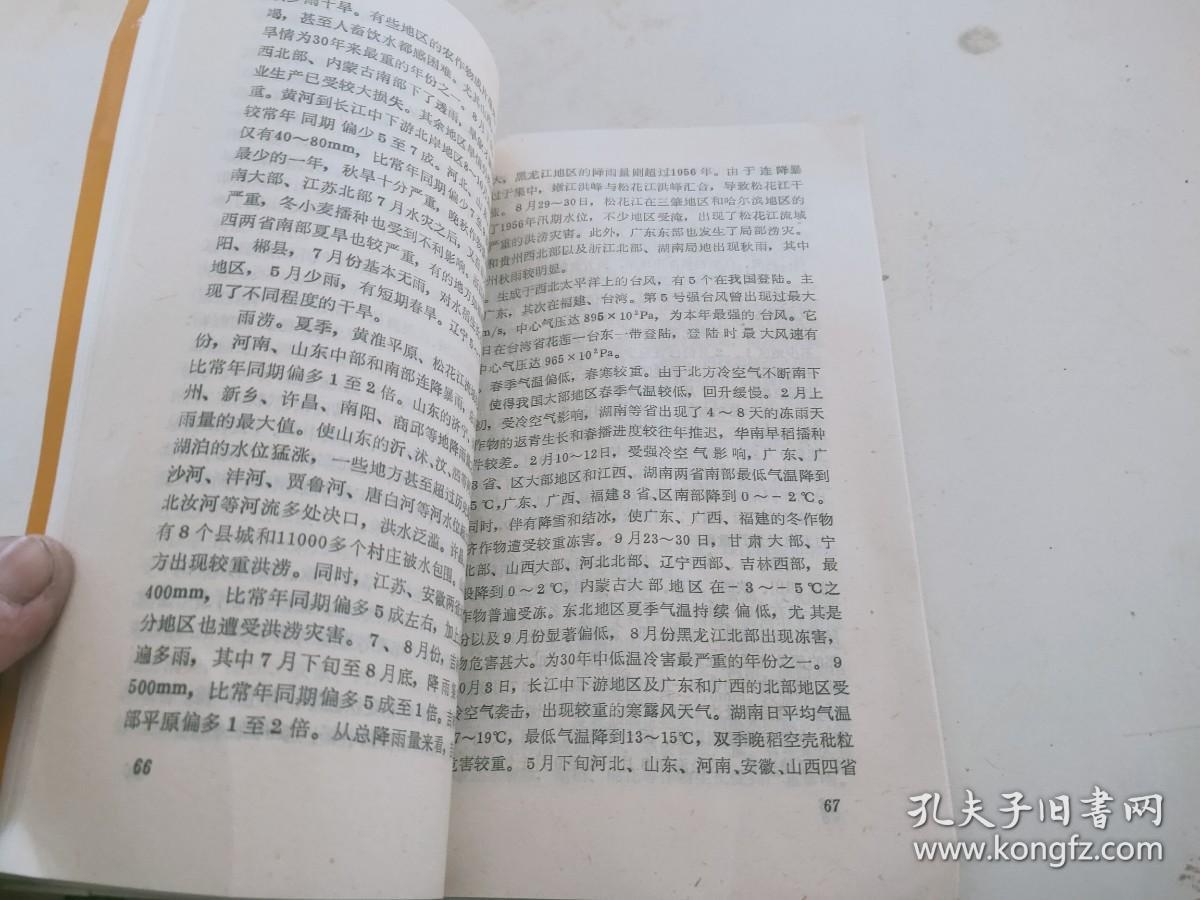 少雨干旱。有些地区的农作物
竭，甚至人畜饮水都感困难。尤其
旱情为30年来最重的年份之一。8月
西北部、内蒙古南部下了透雨，旱象
业生产已受较大损失。其余地区旱情
重。黄河到长江中下游北岸地区8～
较常年同期偏少5至7成。河北、山
仅有40～80mm，比常年同期偏少7
最少的一年，秋旱十分严重，晚秋作物
南大部、江苏北部7月水灾之后，又
严重，冬小麦播种也受到不利影响。
西两省南部夏旱也较严重，有的地方
阳、郴县，7月份基本无雨，对水稻
地区，5月少雨，有短期春旱。辽宁5
现了不同程度的干旱。
雨涝。夏季，黄淮平原、松花江流域
份，河南、山东中部和南部连降暴雨，
比常年同期偏多1至2倍。山东的济宁、
州、新乡、许昌、南阳、商邱等地降雨
雨量的最大值。使山东的沂、沭、汶、泗等
湖泊的水位猛涨，一些地方甚至超过历
沙河、沣河、贾鲁河、唐白河等河水位
北汝河等河流多处决口，洪水泛滥。许昌
有8个县城和11000多个村庄被水包围。
方出现较重洪涝。同时，江苏、安徽两省
400mm，比常年同期偏多5成左右，加上
分地区也遭受洪涝灾害。7、8月份，吉
遍多雨，其中7月下旬至8月底，降雨量
500mm，比常年同期偏多5成至1倍。吉
部平原偏多1至2倍。从总降雨量来看，吉
66
大，黑龙江地区的降雨量则超过1956年。由于连降暴
过于集中，嫩江洪峰与松花江洪峰汇合，导致松花江干
涨。8月29～30日，松花江在三肇地区和哈尔滨地区的
了1956年汛期水位，不少地区受淹，出现了松花江流域
严重的洪涝灾害。此外，广东东部也发生了局部涝灾。
和贵州西北部以及浙江北部、湖南局地出现秋雨，其中
州秋雨较明显。
生成于西北太平洋上的台风，有5个在我国登陆。主
广东，其次在福建、台湾。第5号强台风曾出现过最大
m/s，中心气压达895×10²Pa，为本年最强的台风。它
日在台湾省花莲一台东一带登陆，登陆时最大风速有
中心气压达965×10²Pa。
春季气温偏低，春寒较重。由于北方冷空气不断南下
使得我国大部地区春季气温较低，回升缓慢。2月上
初，受冷空气影响，湖南等省出现了4～8天的冻雨天
作物的返青生长和春播进度较往年推迟，华南早稻播种
件较差。2月10～12日，受强冷空气影响，广东、广
3省、区大部地区和江西、湖南两省南部最低气温降到
5℃，广东、广西、福建3省、区南部降到0～－2℃。
同时，伴有降雪和结冰，使广东、广西、福建的冬作物
济作物遭受较重冻害。9月23～30日，甘肃大部、宁
北部、山西大部、河北北部、辽宁西部、吉林西部，最
降到0～2℃，内蒙古大部地区在－3～－5℃之
作物普遍受冻。东北地区夏季气温持续偏低，尤其是
分以及9月份显著偏低，8月份黑龙江北部出现冻害，
物危害甚大。为30年中低温冷害最严重的年份之一。9
0月3日，长江中下游地区及广东和广西的北部地区受
冷空气袭击，出现较重的寒露风天气。湖南日平均气温
7～19℃，最低气温降到13～15℃，双季晚稻空壳秕粒
危害较重。5月下旬河北、山东、河南、安徽、山西四省
67
孔夫子旧书网
www.kongfz.com